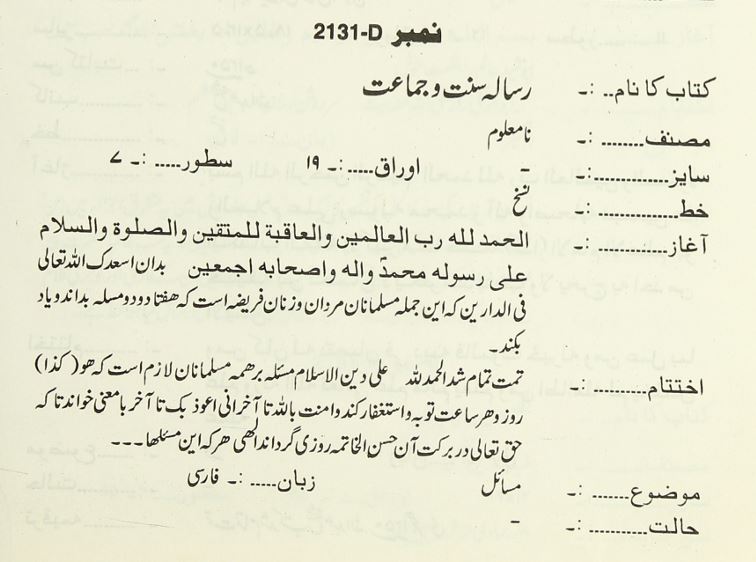 نمبر 2131-D
کتاب کا نام.. :۔ رسالہ سنت و جماعت
مصنف........ :۔ نامعلوم
سایز............:۔ - اوراق....:۔ ۱۹ سطور..... :۔ ۷
خط............. :۔ نسخ
آغاز............ :۔ الحمد لله رب العالمین والعاقبة للمتقین والصلوة والسلام
علی رسوله محمدؐ واله واصحابه اجمعین بدان اسعدک اللہ تعالی
فی الدارین کہ این جملہ مسلمانان مردان و زنان فریضہ است کہ ہفتا دو دو مسلہ بداند و یاد
بکند۔
اختتام.......... :۔ تمت تمام شد الحمد للہ علی دین الاسلام مسئلہ بر ہمہ مسلمانان لازم است کہ ھو (کذا)
روز و ہر ساعت توبہ و استغفار کند و امنت باللہ تا آخر انی اعوذ بک تا آخر با معنی خواند تا کہ
حق تعالی در برکت آن حسن الخاتمہ روزی گرداند الھی ہر کہ این مسئلھا ۔۔۔
موضوع....... :۔ مسائل زبان..... :۔ فارسی
حالت.......... :۔ -